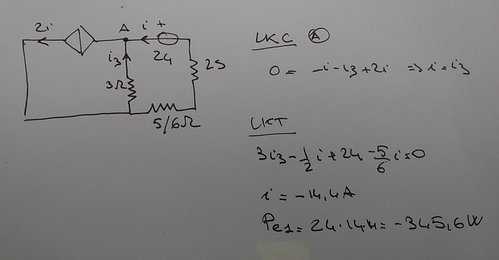 2i
A
i
+
i3
24
2S
3Ω
5/6Ω
LKC A
0 = -i-i3+2i => i=i3
LKT
3i3-1/2i+24-5/6i=0
i=-14,4A
Pe1=24·14,4=-345,6W